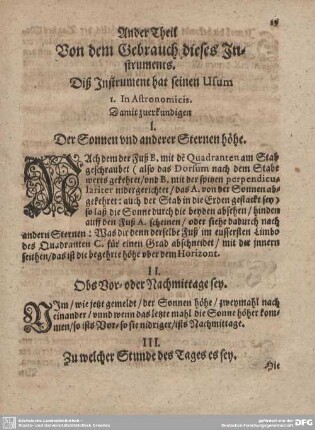 Ander Theil
Von dem Gebrauch dieses In-
strumentes.
Diß Instrument hat seinen Usum
1. In Astronomicis.
Damit zuerkundigen
I.
Der Sonnen vnd anderer Sternen höhe.
NAch dem der Fuß E. mit dē Quadranten am Stab
geschraubt (also das Dorsum nach dem Stabe
werts gekehret/vnd B. mit der spitzen perpendicu
lariter nidergerichtet/das A. von der Sonnen abs
gekehret: auch der Stab in die Erden gesteckt sey)
so laß die Sonne durch die beyden absehen/hinden
auff den Fuß A. scheinen/oder siehe dadurch nach
andern Sternen: Was dir denn derselbe Fuß im eussersten Limbo
des Quadranten C. für einen Grad abschneidet/mit der jnnern
seithen/das ist die begehrte höhe vber dem Horizont.
II.
Obs Vor- oder Nachmittage sey.
NIm/wie jetzt gemeldt/der Sonnen höhe/zweymahl nach
einander/vnnd wenn das letzte mahl die Sonne höher kom-
men/so ists Vor- so sie nidriger/ists Nachmittage.
III.
Zu welcher Stunde des Tages es sey.
Die